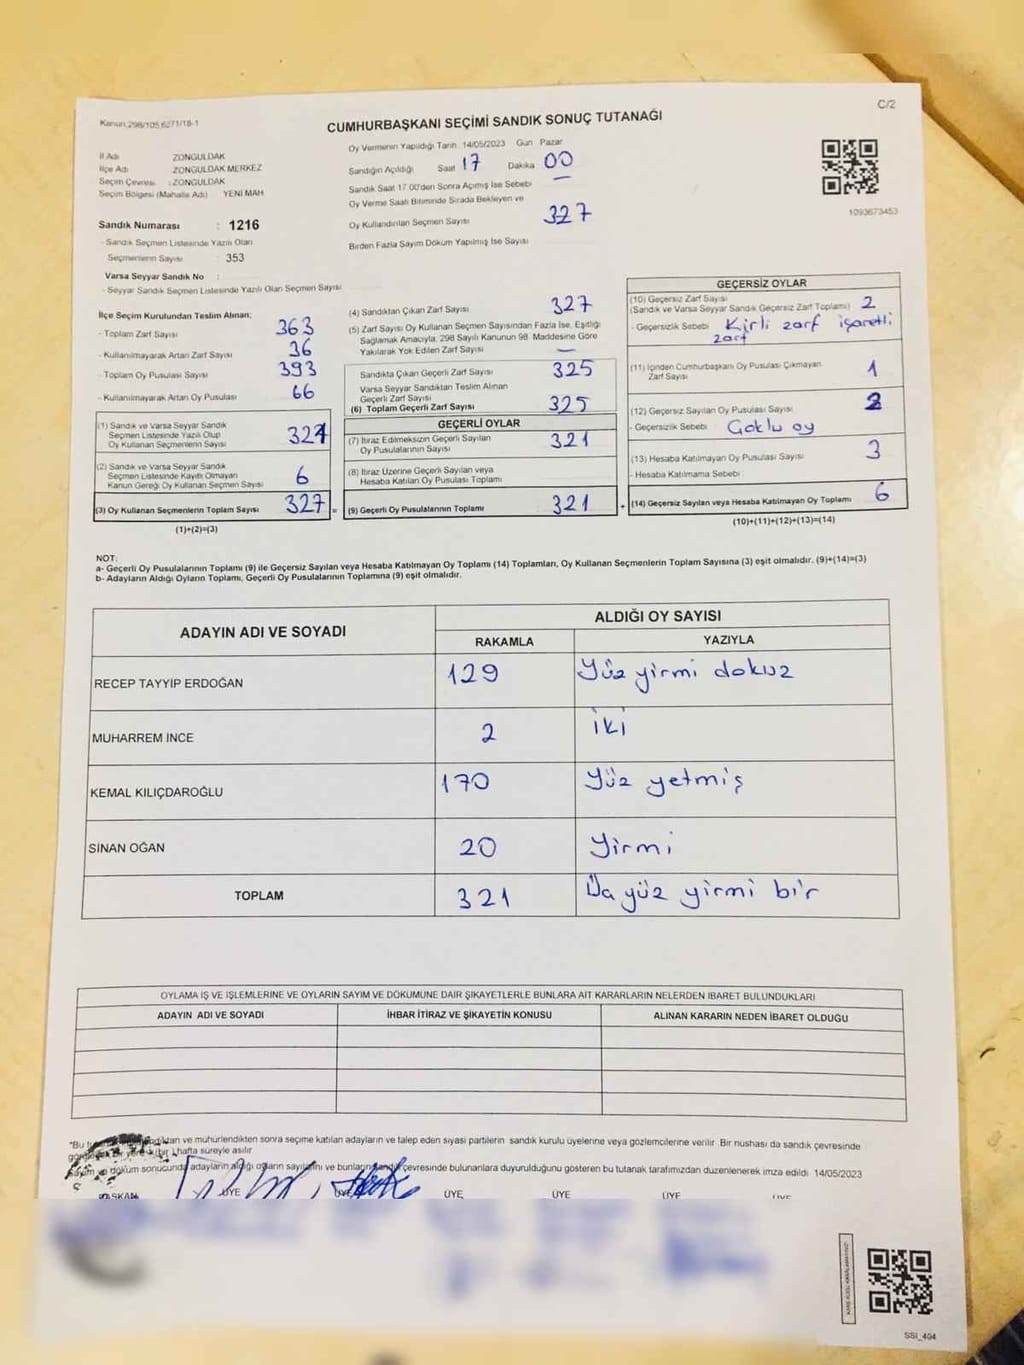 C/2
Kanun:298/105,6271/18-1
CUMHURBAŞKANI SEÇİMİ SANDIK SONUÇ TUTANAĞI
İl Adı ZONGULDAK
İlçe Adı ZONGULDAK MERKEZ
Seçim Çevresi :ZONGULDAK
Seçim Bölgesi (Mahalle Adı) YENİ MAH
Sandık Numarası : 1216
- Sandık Seçmen Listesinde Yazılı Olan
Seçmenlerin Sayısı : 353
Varsa Seyyar Sandık No :
- Seyyar Sandık Seçmen Listesinde Yazılı Olan Seçmen Sayısı
Oy Vermenin Yapıldığı Tarih 14/05/2023 Gün Pazar
Sandığın Açıldığı Saat 17 Dakika 00
Sandık Saat 17.00'den Sonra Açılmış İse Sebebi —
Oy Verme Saati Bitiminde Sırada Bekleyen ve
Oy Kullandırılan Seçmen Sayısı 327
Birden Fazla Sayım Döküm Yapılmış İse Sayısı
1093673453
İlçe Seçim Kurulundan Teslim Alınan:
- Toplam Zarf Sayısı 363
- Kullanılmayarak Artan Zarf Sayısı 36
- Toplam Oy Pusulası Sayısı 393
- Kullanılmayarak Artan Oy Pusulası 66
(1) Sandık ve Varsa Seyyar Sandık
Seçmen Listesinde Yazılı Olup
Oy Kullanan Seçmenlerin Sayısı 327
(2) Sandık ve Varsa Seyyar Sandık
Seçmen Listesinde Kayıtlı Olmayan
Kanun Gereği Oy Kullanan Seçmen Sayısı 6
(3) Oy Kullanan Seçmenlerin Toplam Sayısı 327 =
(1)+(2)=(3)
(4) Sandıktan Çıkan Zarf Sayısı 327
(5) Zarf Sayısı Oy Kullanan Seçmen Sayısından Fazla İse, Eşitliği
Sağlamak Amacıyla, 298 Sayılı Kanunun 98. Maddesine Göre
Yakılarak Yok Edilen Zarf Sayısı —
Sandıkta Çıkan Geçerli Zarf Sayısı 325
Varsa Seyyar Sandıktan Teslim Alınan
Geçerli Zarf Sayısı
(6) Toplam Geçerli Zarf Sayısı 325
GEÇERLİ OYLAR
(7) İtiraz Edilmeksizin Geçerli Sayılan
Oy Pusulalarının Sayısı 321
(8) İtiraz Üzerine Geçerli Sayılan veya
Hesaba Katılan Oy Pusulası Toplamı
(9) Geçerli Oy Pusulalarının Toplamı 321 +
GEÇERSİZ OYLAR
(10) Geçersiz Zarf Sayısı
(Sandık ve Varsa Seyyar Sandık Geçersiz Zarf Toplamı) 2
- Geçersizlik Sebebi Kirli zarf işaretli
zarf
(11) İçinden Cumhurbaşkanı Oy Pusulası Çıkmayan
Zarf Sayısı 1
(12) Geçersiz Sayılan Oy Pusulası Sayısı
- Geçersizlik Sebebi Çoklu oy
(13) Hesaba Katılmayan Oy Pusulası Sayısı 3
- Hesaba Katılmama Sebebi
(14) Geçersiz Sayılan veya Hesaba Katılmayan Oy Toplamı 6
(10)+(11)+(12)+(13)=(14)
NOT:
a- Geçerli Oy Pusulalarının Toplamı (9) ile Geçersiz Sayılan veya Hesaba Katılmayan Oy Toplamı (14) Toplamları, Oy Kullanan Seçmenlerin Toplam Sayısına (3) eşit olmalıdır. (9)+(14)=(3)
b- Adayların Aldığı Oyların Toplamı, Geçerli Oy Pusulalarının Toplamına (9) eşit olmalıdır.
ADAYIN ADI VE SOYADI ALDIĞI OY SAYISI
RAKAMLA YAZIYLA
RECEP TAYYİP ERDOĞAN 129 Yüz yirmi dokuz
MUHARREM İNCE 2 iki
KEMAL KILIÇDAROĞLU 170 Yüz yetmiş
SİNAN OĞAN 20 Yirmi
TOPLAM 321 Üç yüz yirmi bir
OYLAMA İŞ VE İŞLEMLERİNE VE OYLARIN SAYIM VE DÖKÜMÜNE DAİR ŞİKAYETLERLE BUNLARA AİT KARARLARIN NELERDEN İBARET BULUNDUKLARI
ADAYIN ADI VE SOYADI İHBAR İTİRAZ VE ŞİKAYETİN KONUSU ALINAN KARARIN NEDEN İBARET OLDUĞU
*Bu ve mühürlendikten sonra seçime katılan adayların ve talep eden siyasi partilerin sandık kurulu üyelerine veya gözlemcilerine verilir. Bir nüshası da sandık çevresinde
bir yere bir hafta süreyle asılır
Sayım ve döküm sonucunda adayların aldığı oyların sayılarını ve bunların sandık çevresinde bulunanlara duyurulduğunu gösteren bu tutanak tarafımızdan düzenlenerek imza edildi. 14/05/2023
BAŞKAN ÜYE ÜYE ÜYE ÜYE ÜYE ÜYE
SSİ_404